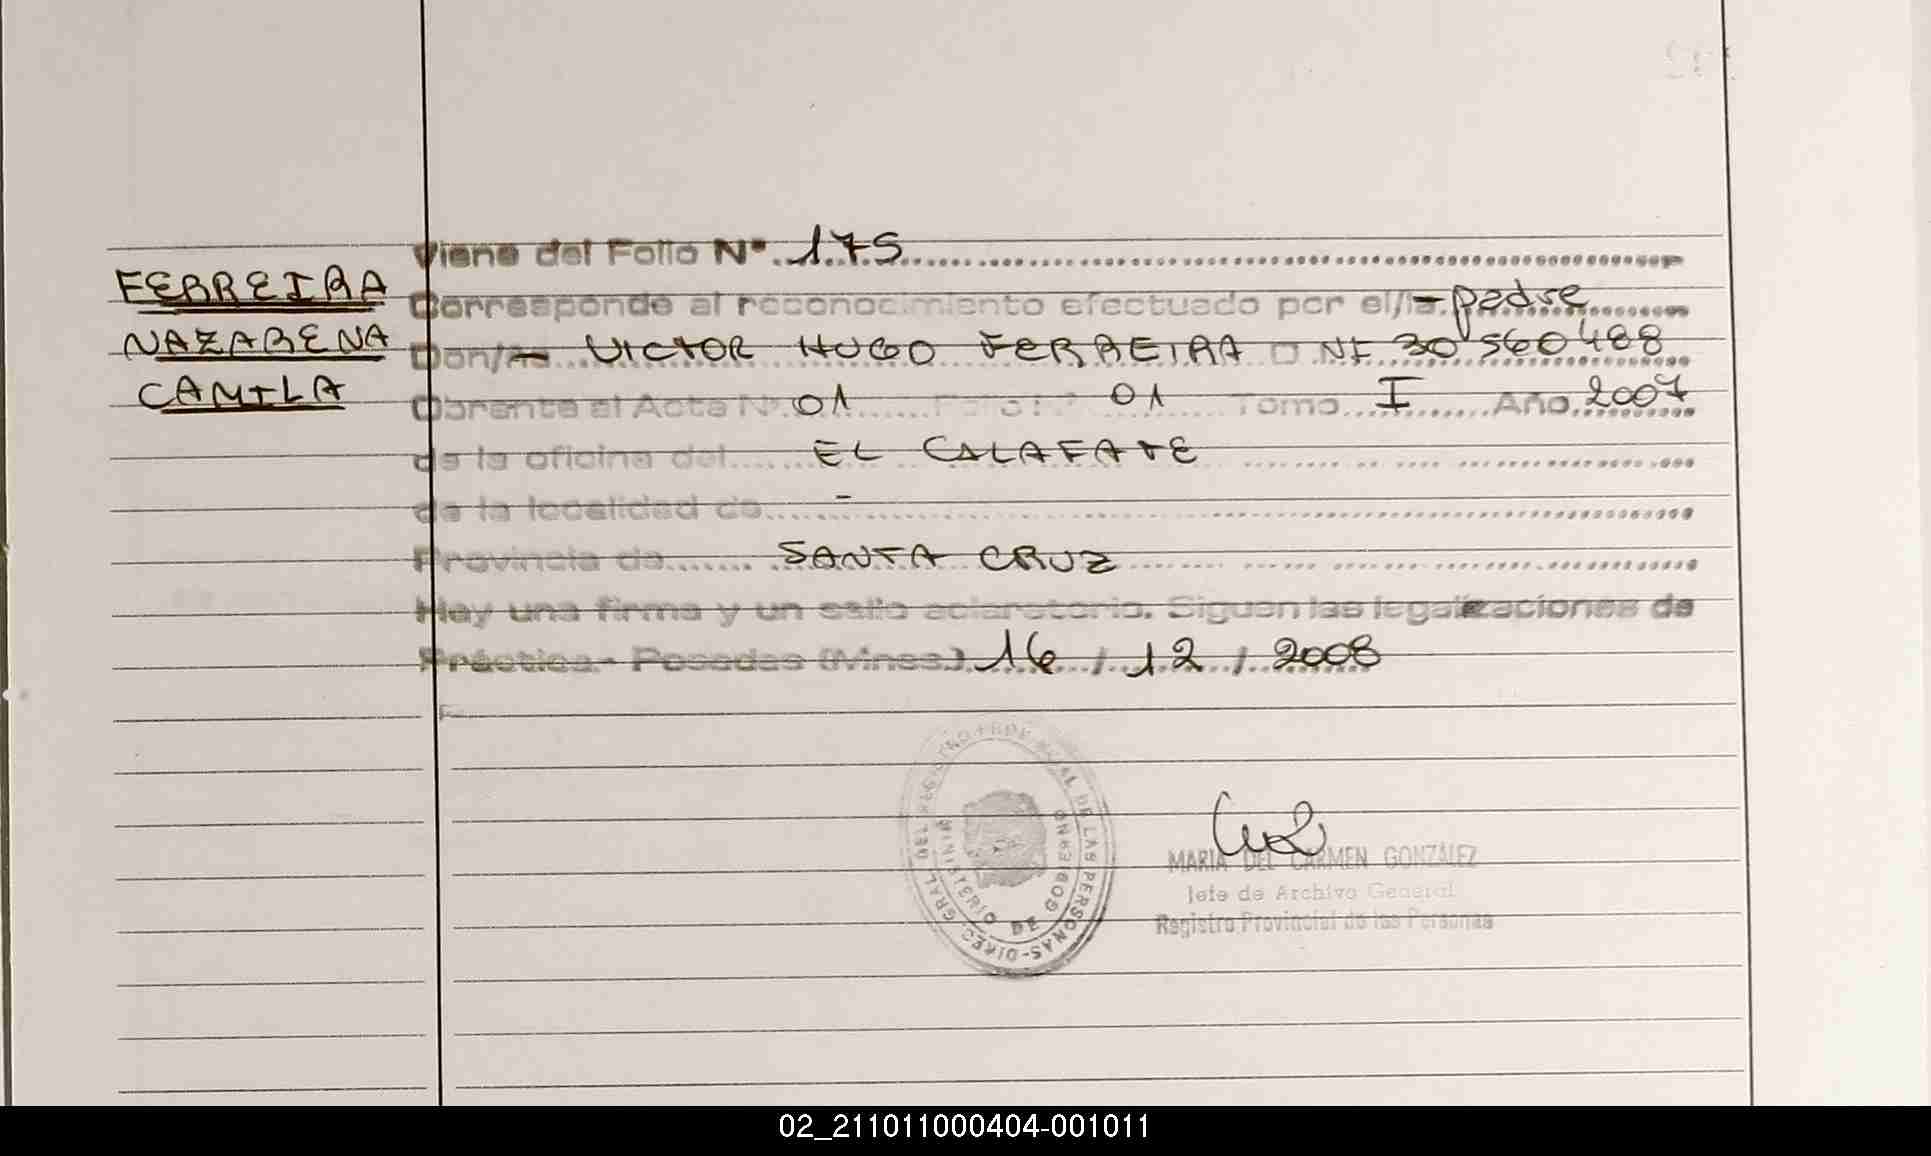 FERREIRA
NAZARENA
CAMILA
Viene del Folio N° 175
Corresponde al reconocimiento efectuado por el/la - padre
Don/ña VICTOR HUGO FERREIRA D NI 30 560 488
Obrante al Acta N° 01 Folio N° 01 Tomo I Año 2007
de la oficina del EL CALAFATE
de la localidad de -
Provincia de SANTA CRUZ
Hay una firma y un sello aclaratorio. Siguen las legalizaciones de
Práctica - Posadas (Mnes.) 16 / 12 / 2008
MARIA DEL CARMEN GONZÁLEZ
Jefe de Archivo General
Registro Provincial de las Personas
REGISTRO PROVINCIAL DE LAS PERSONAS - DIREC. GRAL. DEL
MINISTERIO DE GOBIERNO
02_211011000404-001011